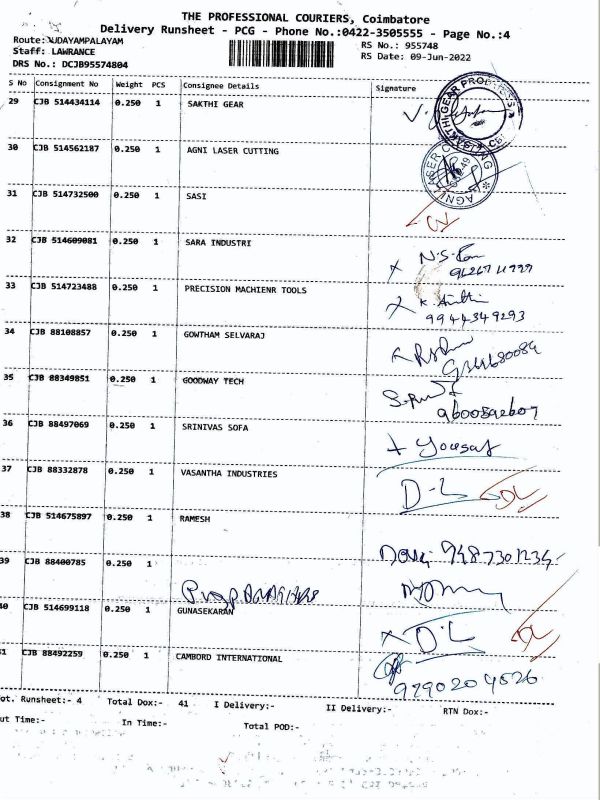 THE PROFESSIONAL COURIERS, Coimbatore
Delivery Runsheet - PCG - Phone No.:0422-3505555 - Page No.:4
Route: UDAYAMPALAYAM
RS No.: 955748
Staff: LAWRANCE
RS Date: 09-Jun-2022
DRS No.: DCJB95574804
S No Consignment No Weight PCS Consignee Details Signature
29 CJB 514434114 0.250 1 SAKTHI GEAR
SAKTHI GEAR PRODUCTS
30 CJB 514562187 0.250 1 AGNI LASER CUTTING
AGNI LASER CUTTING
31 CJB 514732500 0.250 1 SASI
32 CJB 514609081 0.250 1 SARA INDUSTRI
N.S.
33 CJB 514723488 0.250 1 PRECISION MACHIENR TOOLS
9944349293
34 CJB 88108857 0.250 1 GOWTHAM SELVARAJ
35 CJB 88349851 0.250 1 GOODWAY TECH
9600592607
36 CJB 88497069 0.250 1 SRINIVAS SOFA
37 CJB 88332878 0.250 1 VASANTHA INDUSTRIES
D-L DL
38 CJB 514675897 0.250 1 RAMESH
9487301234
39 CJB 88400785 0.250 1
40 CJB 514699118 0.250 1 GUNASEKARAN
D-L DL
41 CJB 88492259 0.250 1 CAMBORD INTERNATIONAL
9790204526
ot. Runsheet:- 4 Total Dox:- 41 I Delivery:- II Delivery:- RTN Dox:-
ut Time:- In Time:- Total POD:-